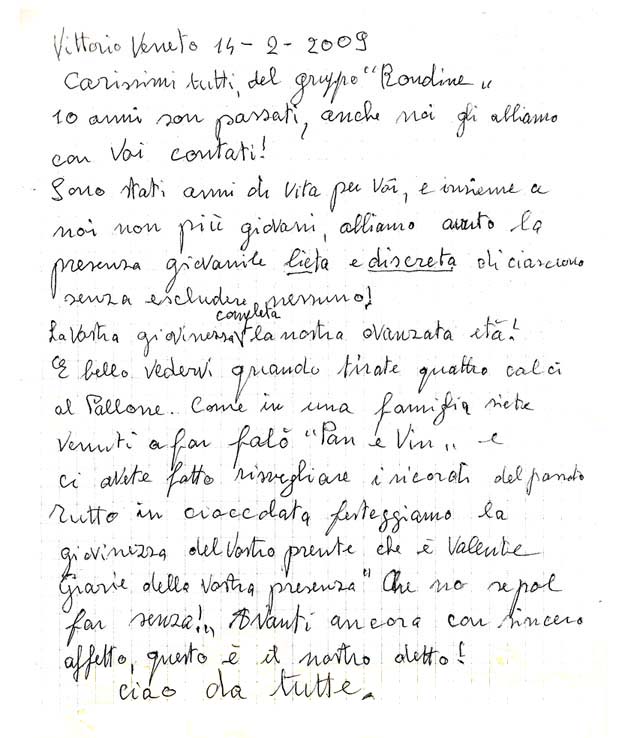 Vittorio Veneto 14-2-2009
Carissimi tutti, del gruppo "Rondine"
10 anni son passati, anche noi gli abbiamo
con Voi contati!
Sono stati anni di vita per Voi, e insieme a
noi non più giovani, abbiamo avuto la
presenza giovanile lieta e discreta di ciascuno
senza escludere nessuno!
La Vostra giovinezza completa la nostra avanzata età!
È bello vedervi quando tirate quattro calci
al Pallone. Come in una famiglia siete
venuti a far falò "Pan e Vin" e
ci avete fatto risvegliare i ricordi del passato
Tutto in cioccolata festeggiamo la
giovinezza del Vostro prente che è Valente
Grazie della Vostra presenza "Che no se pol
far senza!" Avanti ancora con sincero
affetto, questo è il nostro detto!
ciao da tutte.